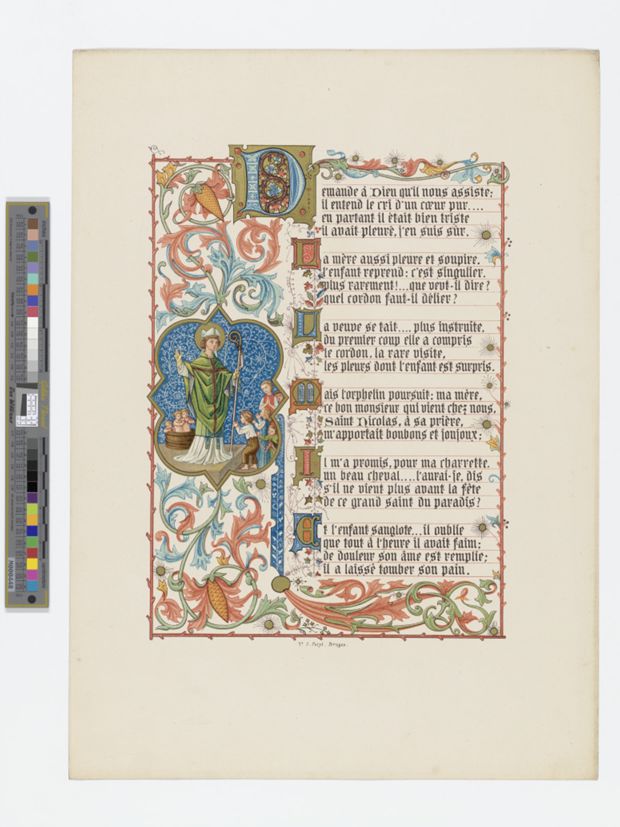 Demande à Dieu qu'il nous assiste:
il entend le cri d'un cœur pur....
en partant il était bien triste
il avait pleuré, j'en suis sûr.
Sa mère aussi pleure et soupire.
l'enfant reprend: c'est singulier.
plus rarement!...que veut-il dire?
quel cordon faut-il délier?
La veuve se tait.... plus instruite.
du premier coup elle a compris
le cordon, la rare visite,
les pleurs dont l'enfant est surpris.
Mais l'orphelin poursuit: ma mère,
ce bon monsieur qui vient chez nous,
Saint Nicolas, à sa prière,
m'apportait bonbons et joujoux;
Il m'a promis, pour ma charrette.
un beau cheval....l'aurai-je, dis
s'il ne vient plus avant la fête
de ce grand saint du paradis?
Et l'enfant sanglote...il oublie
que tout à l'heure il avait faim;
de douleur son âme est remplie;
il a laissé tomber son pain.
Bruges